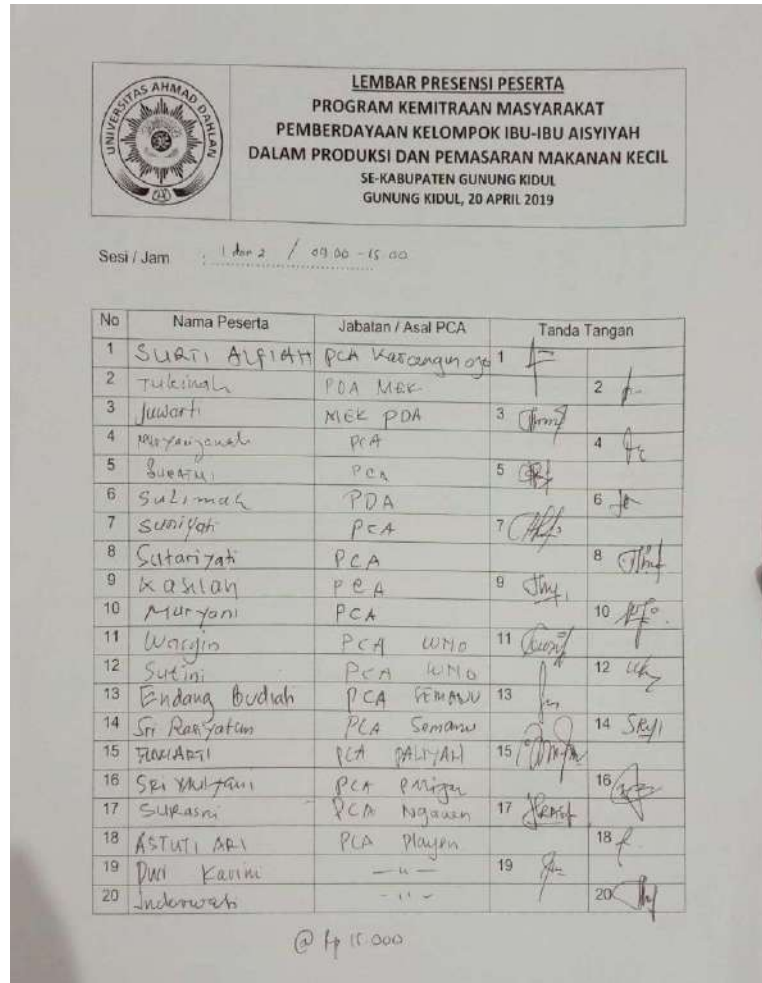 UNIVERSITAS AHMAD DAHLAN
LEMBAR PRESENSI PESERTA
PROGRAM KEMITRAAN MASYARAKAT
PEMBERDAYAAN KELOMPOK IBU-IBU AISYIYAH
DALAM PRODUKSI DAN PEMASARAN MAKANAN KECIL
SE-KABUPATEN GUNUNG KIDUL
GUNUNG KIDUL, 20 APRIL 2019
Sesi / Jam : 1 dan 2 / 09.00 - 15.00
No Nama Peserta Jabatan / Asal PCA Tanda Tangan
1 SURTI ALFIAH PCA 1
2 Tukinah PDA MEK 2
3 Juwarti MEK PDA 3
4 PCA 4
5 PCA 5
6 Sulimah PDA 6
7 PCA 7
8 Sutariyati PCA 8
9 Kasilah PCA 9
10 Muryani PCA 10
11 PCA WNO 11
12 Sutini PCA WNO 12
13 Endang Budiah PCA SEMANU 13
14 Sri PCA Semanu 14
15 PCA PALIYAN 15
16 SRI PCA 16
17 SURasni PCA Ngawen 17
18 ASTUTI ARI PCA Playen 18
19 Dwi — " — 19
20 - " - 20
@ Rp 15.000